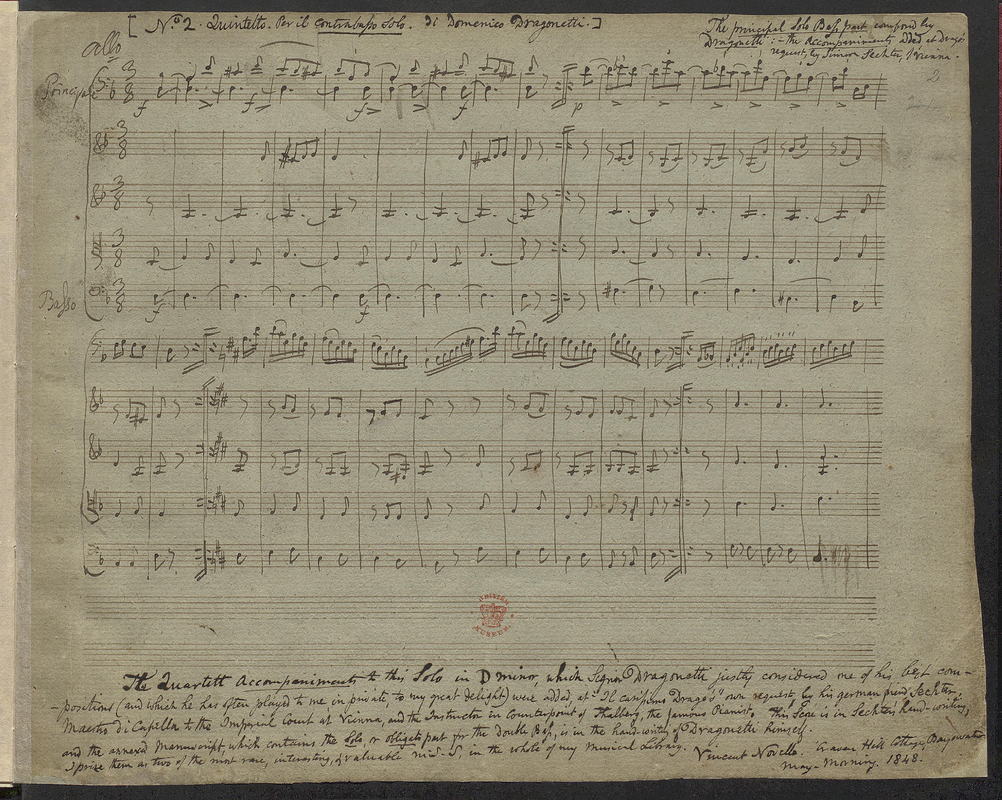 [ No. 2. Quintetto. Per il Contrabasso Solo. di Domenico Dragonetti. ]
The principal Solo Bass part composed by
Dragonetti:- the Accompaniments added at Drag's
request by Simon Sechter, Vienna.
2
Allo
Principale
Basso
BRITISH MUSEUM
The Quartett Accompaniments to this Solo in D minor, which Signr Dragonetti justly considered one of his best com-
-positions (and which he has often played to me in private, to my great delight) were added, at "Il carissimo Drago's" own request, by his german friend Sechter,
Maestro di Capella to the Imperial Court at Vienna, and the Instructor in Counterpoint of Thalberg, the famous Pianist. This Score is in Sechter's hand-writing,
and the annexed Manuscript, which contains the Solo, or obligato part for the Double Bass, is in the hand-writing of Dragonetti himself.
I prize them as two of the most rare, interesting, & valuable M.S.S, in the whole of my Musical Library.
Vincent Novello. Craven Hill Cottage, Bayswater
May-Morning. 1848.